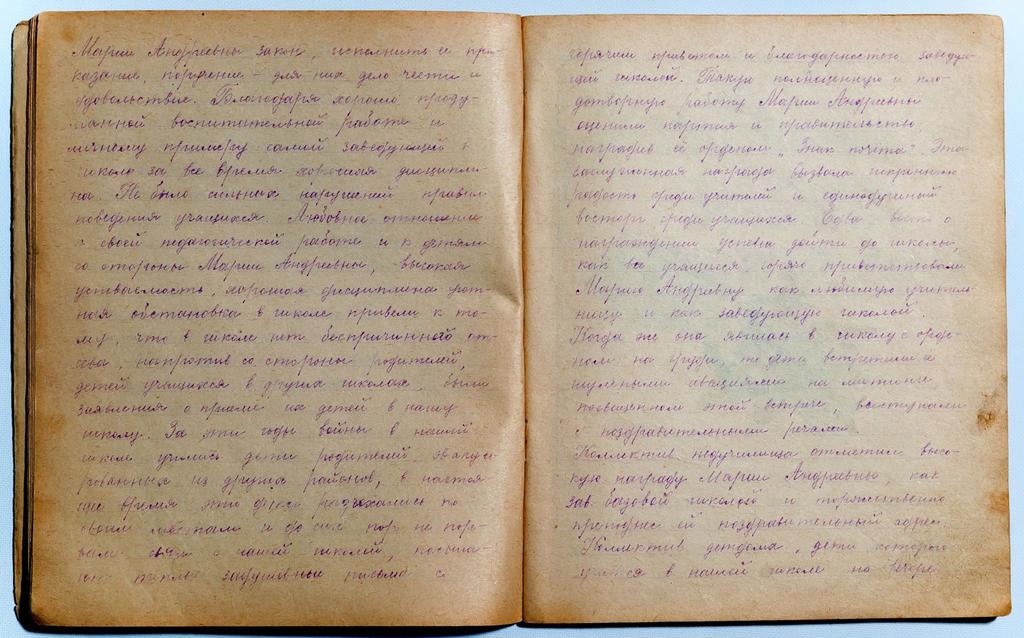 Марии Андреевны закон, исполнить её при-
казание, поручение – для них дело чести и
удовольствие. Благодаря хорошо проду-
манной воспитательной работе и
личному примеру самой заведующей в
школе за всё время хорошая дисципли-
на. Не было сильных нарушений правил
поведения учащихся. Любовное отношение
к своей педагогической работе и к детям
со стороны Марии Андреевны, высокая
успеваемость, хорошая дисциплина
обстановка в школе привели к то-
му, что в школе нет беспричинного от-
сева, напротив со стороны родителей,
детей учащихся в других школах, были
заявления о приёме их детей в нашу
школу. За эти годы войны в нашей
школе учились дети родителей, эвакуи-
рованных из других районов, в настоя-
щее время эти дети разъехались по
своим местам и до сих пор не пор-
вали связи с нашей школой, посыла-
ют тёплые задушевные письма с
горячим приветом и благодарностью заведую-
щей школой. Такую полноценную и пло-
дотворную работу Марии Андреевны
оценили партия и правительство,
наградив её орденом „Знак почёта". Эта
заслуженная награда вызвала искреннюю
радость среди учителей и единодушный
восторг среди учащихся. Едва весть о
награждении успела дойти до школы,
как все учащиеся горячо приветствовали
Марию Андреевну как любимую учитель-
ницу и как заведующую школой.
Когда же она явилась в школу с орде-
ном на груди, то дети встретили её
шумными овациями на митинге,
посвящённом этой встрече, выступали
с поздравительными речами.
Коллектив педучилища отметил высо-
кую награду Марии Андреевны, как
зав. базовой школой и торжественно
преподнёс ей поздравительный адрес.
Коллектив детдома, дети которого
учатся в нашей школе на вечере